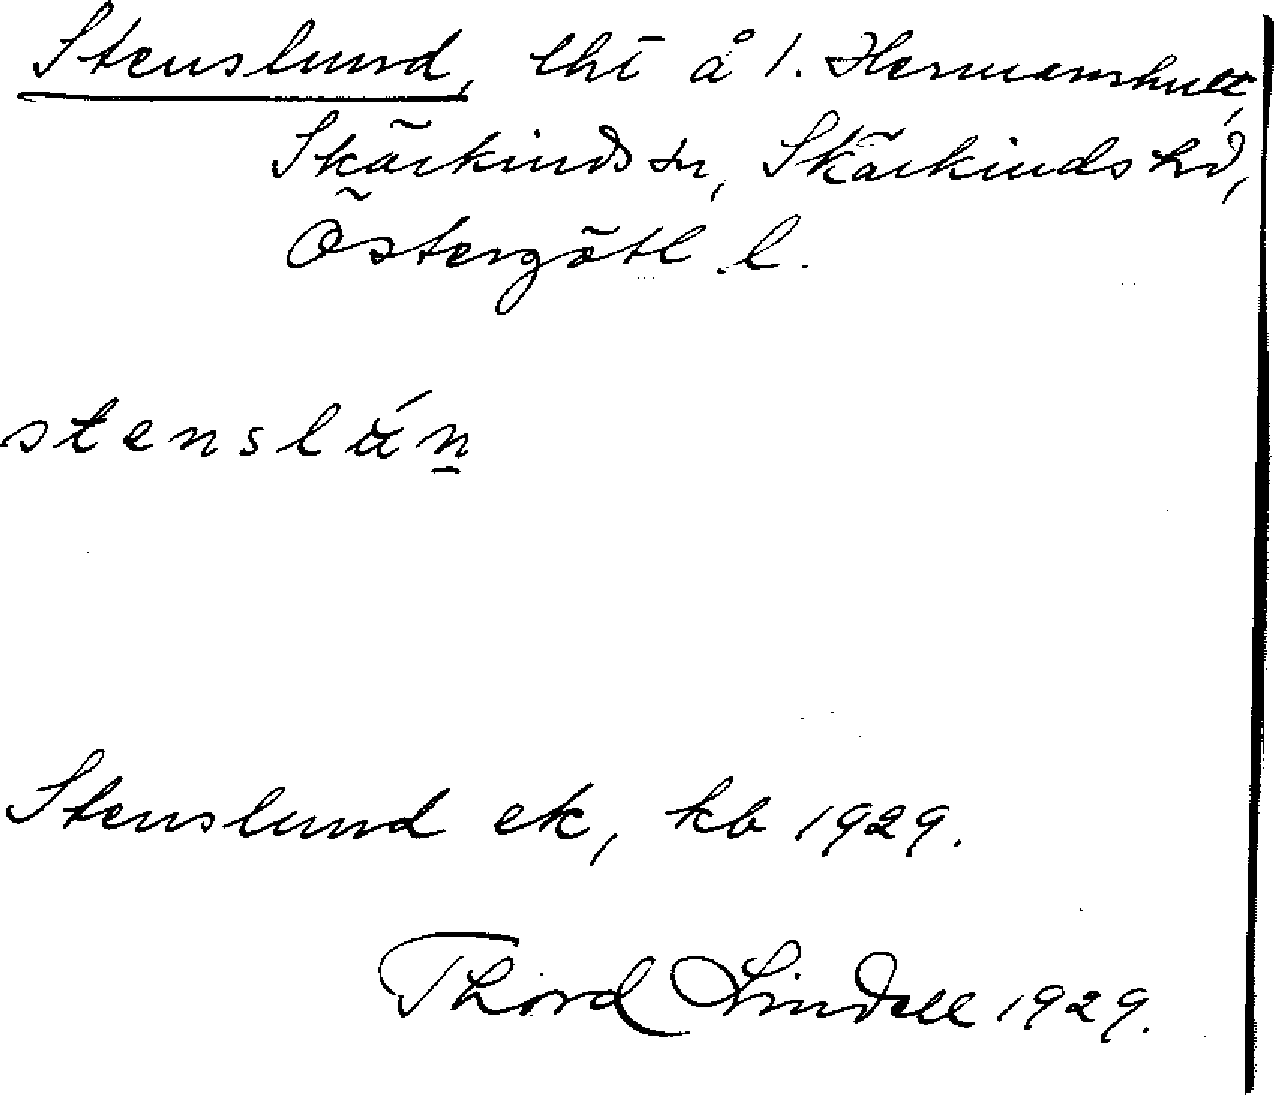 Stenslund, lht å 1. Hermanshult,
Skärkinds sn, Skärkinds hd,
Östergötl. l.
stenslún̲
Stenslund ek, kb 1929.
Thord Lindell 1929.